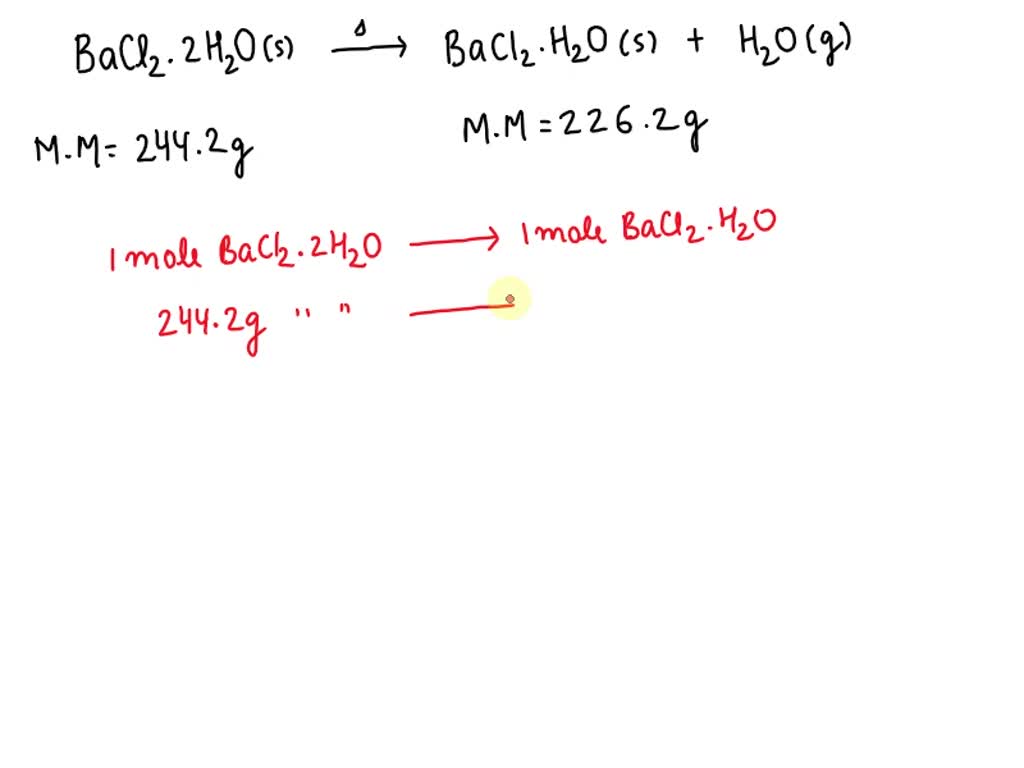 BaCl₂.2H₂O(s) —Δ→ BaCl₂.H₂O(s) + H₂O(g)
M.M= 244.2g M.M=226.2g
1 mole BaCl₂.2H₂O ⟶ 1 mole BaCl₂.H₂O
244.2g " " —